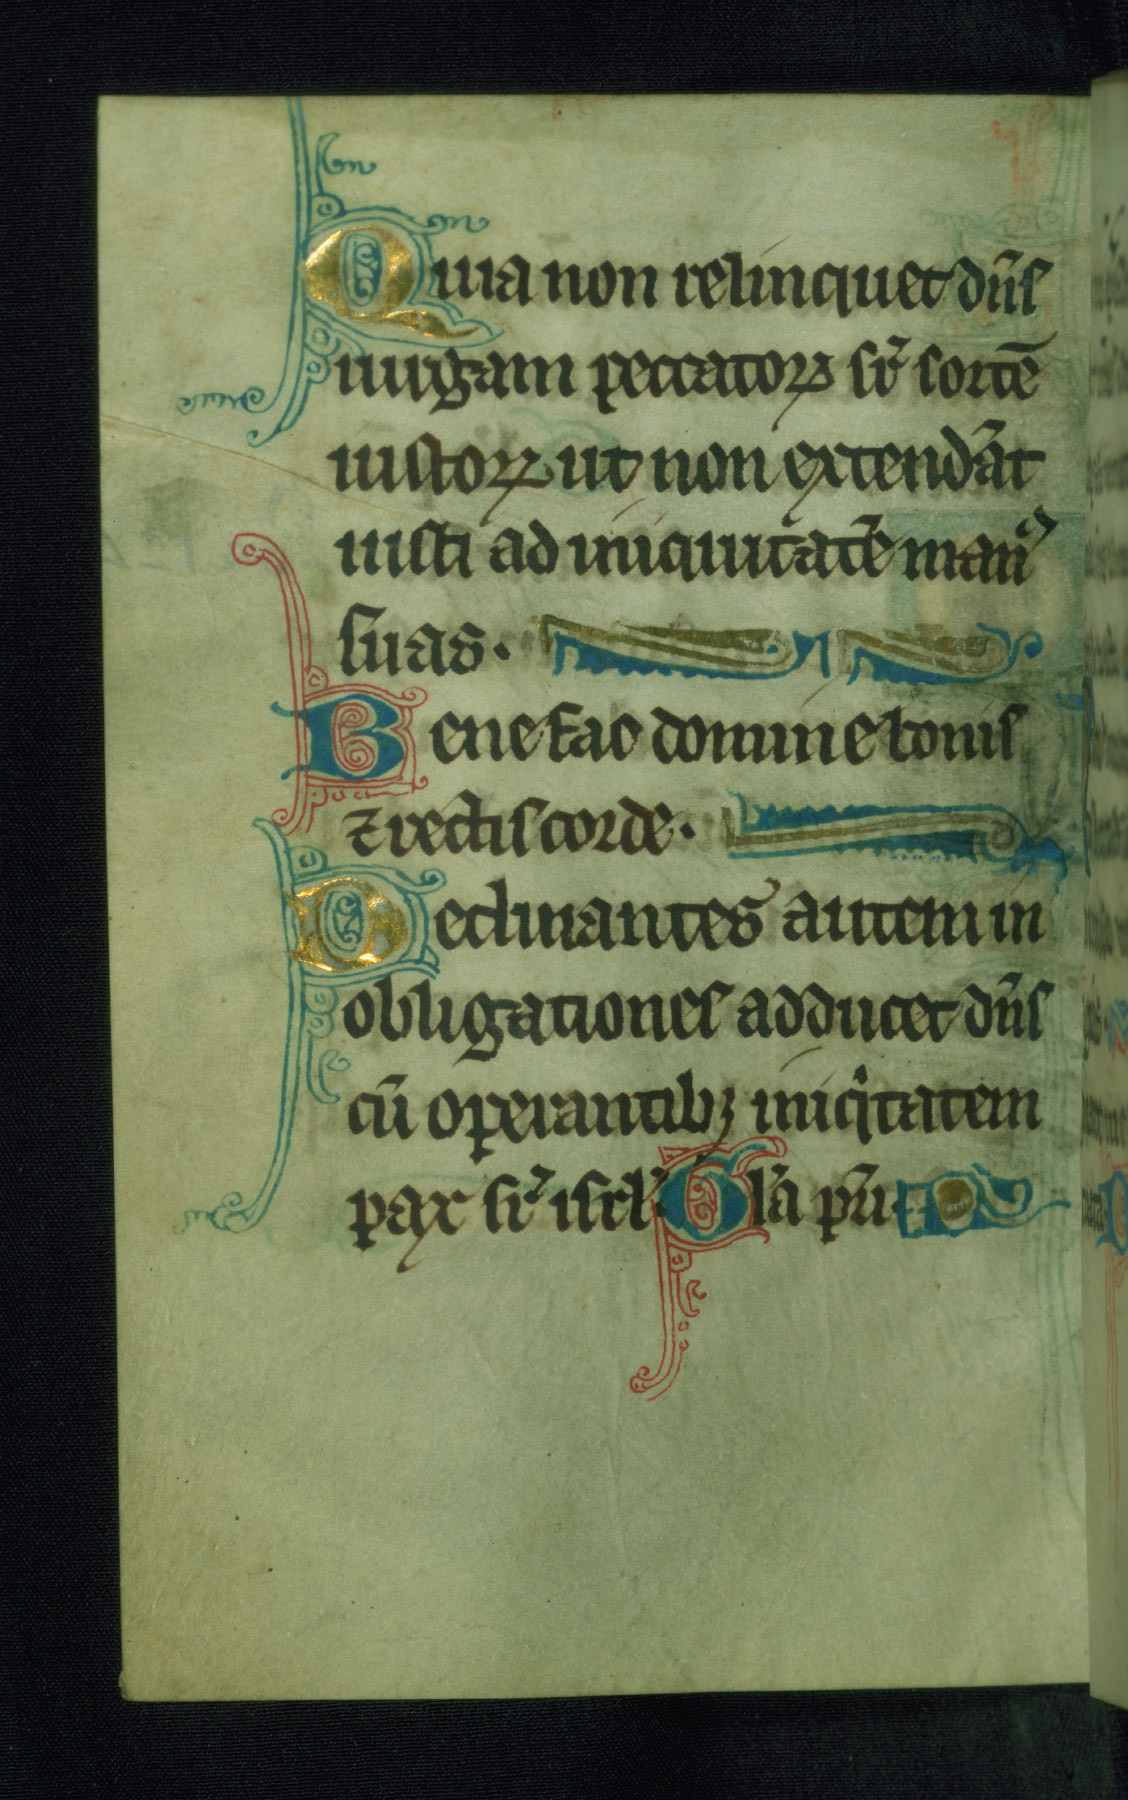 Quia non relinquet dñs
uirgam peccatoꝝ sr̃ sortē
iustoꝝ ut non extendãt
iusti ad iniquitatē manꝰ
suas.
Bene fac domine bonis
⁊ rectis corde.
Declinantes autem in
obligationes adducet dñs
cū operantibꝫ iniqͥtatem
pax sr̃ isrl̃. Glã pr̃i.